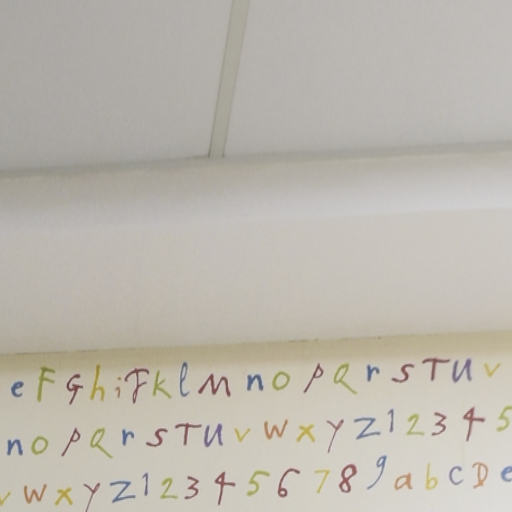 e F G h i J k l M n o p Q r s T U v
n o p Q r s T U v W x y Z 1 2 3 4 5
v W x y Z 1 2 3 4 5 6 7 8 9 a b c D e